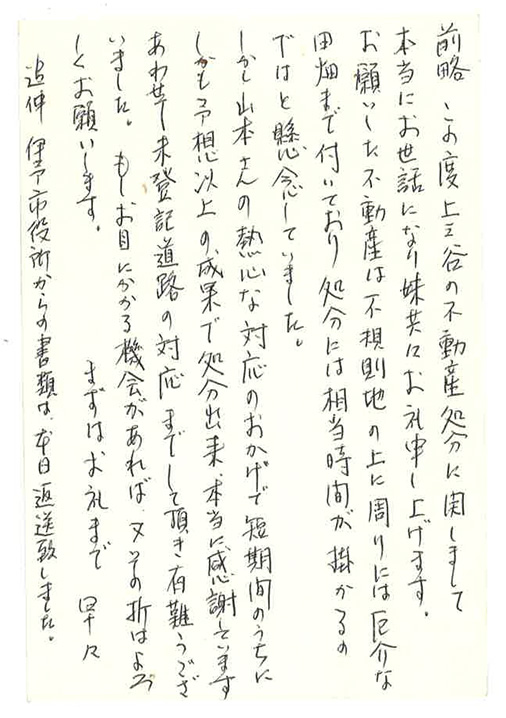 前略 この度上三谷の不動産処分に関しまして
本当にお世話になり妹共にお礼申し上げます。
お願いした不動産は不規則地の上に周りには厄介な
田畑まで付いており処分には相当時間が掛かるの
ではと懸念していました。
しかし山本さんの熱心な対応のおかげで短期間のうちに
しかも予想以上の成果で処分出来、本当に感謝しています
あわせて未登記道路の対応までして頂き有難うござ
いました。 もしお目にかかる機会があれば、又その折はよろ
しくお願いします。
まずはお礼まで 早々
追伸 伊予市役所からの書類は、本日返送致しました。